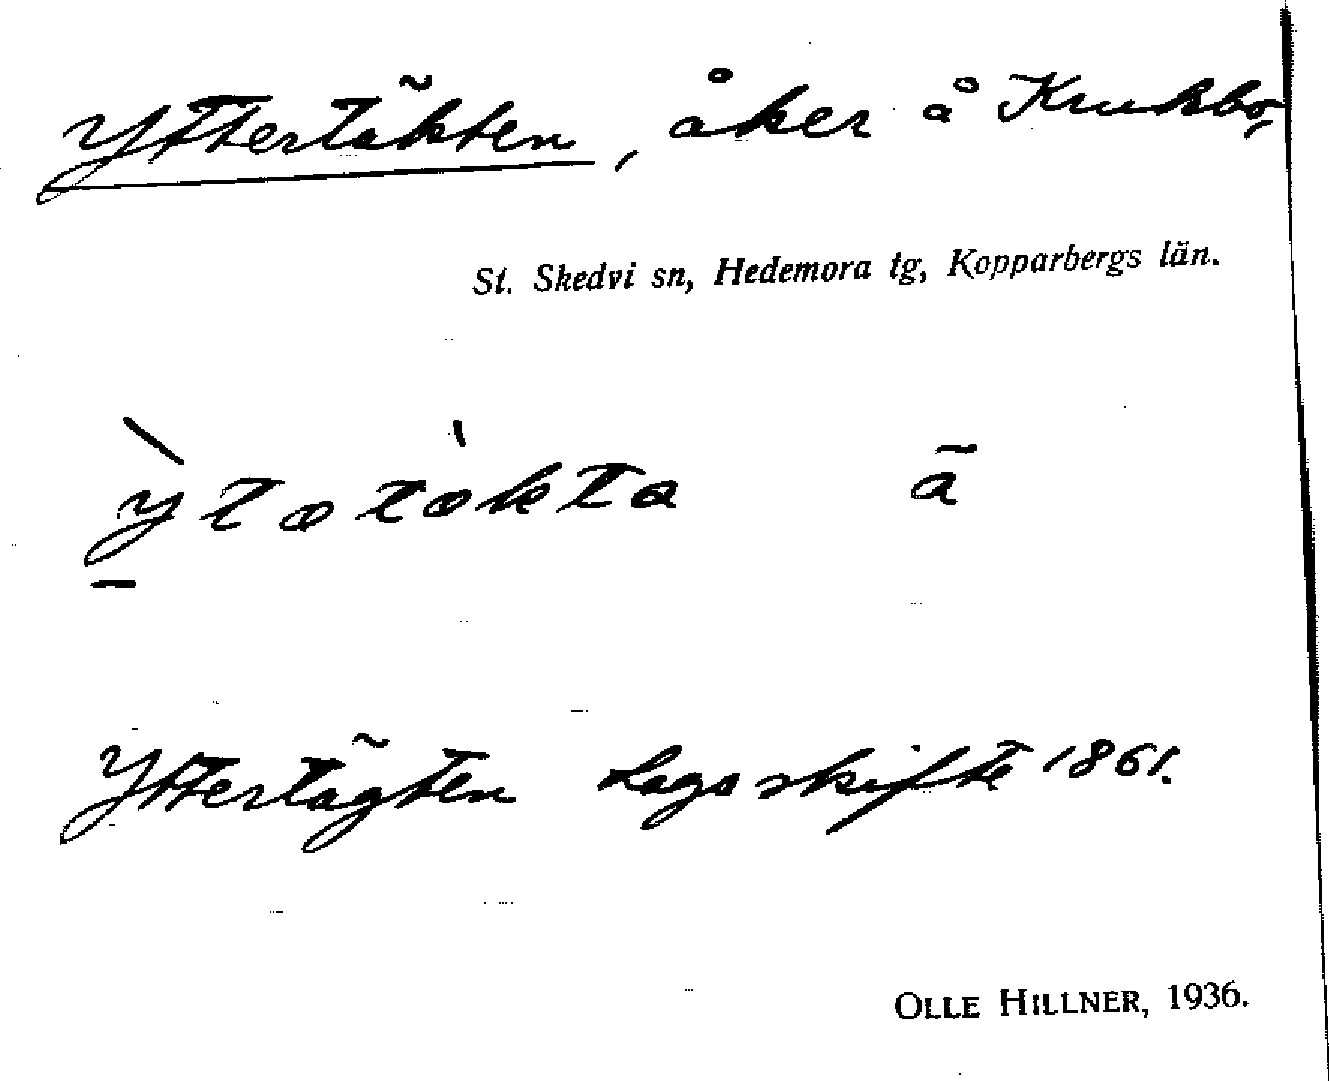 Yttertäkten, åker å Krukbo,
St. Skedvi sn, Hedemora tg, Kopparbergs län.
ỳtətəkta ā
Yttertägten Lagaskifte 1861.
OLLE HILLNER, 1936.